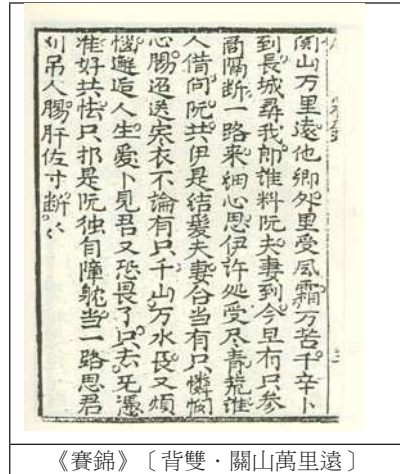 関山万里遠他鄉外里受風霜万苦千辛卜
到長城尋我郎誰料阮夫妻到今旦有只参
商隔断一路來細心思伊許処受尽青荒誰
人借問阮共伊是結髮夫妻台当有只憐憫
心腸迢送寒衣不論有只千山万水長又煩
惱邂逅人生愛卜見君又恐畏了只去无憑
准好共怯只都是阮独自障躭当一路思君
刈吊人腸肝佐寸断
《賽錦》〔背雙．關山萬里遠〕